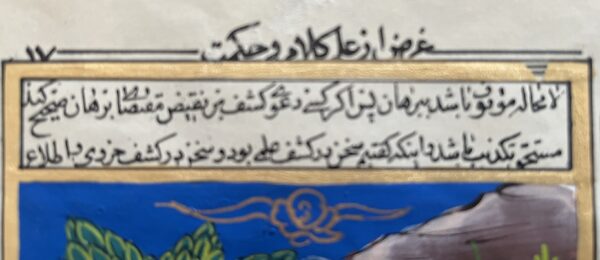 ۱۷ غرض از علم کلام و حکمت
لامحاله موقوف باشد ببرهان پس اگر کسی دعوی کشف بر نقیض مقتضای برهان صحیح کند
مستحق تکذیب باشد و اینکه گفتیم سخن در کشف علمی بود و سخن در کشف جزوی و اطلاع